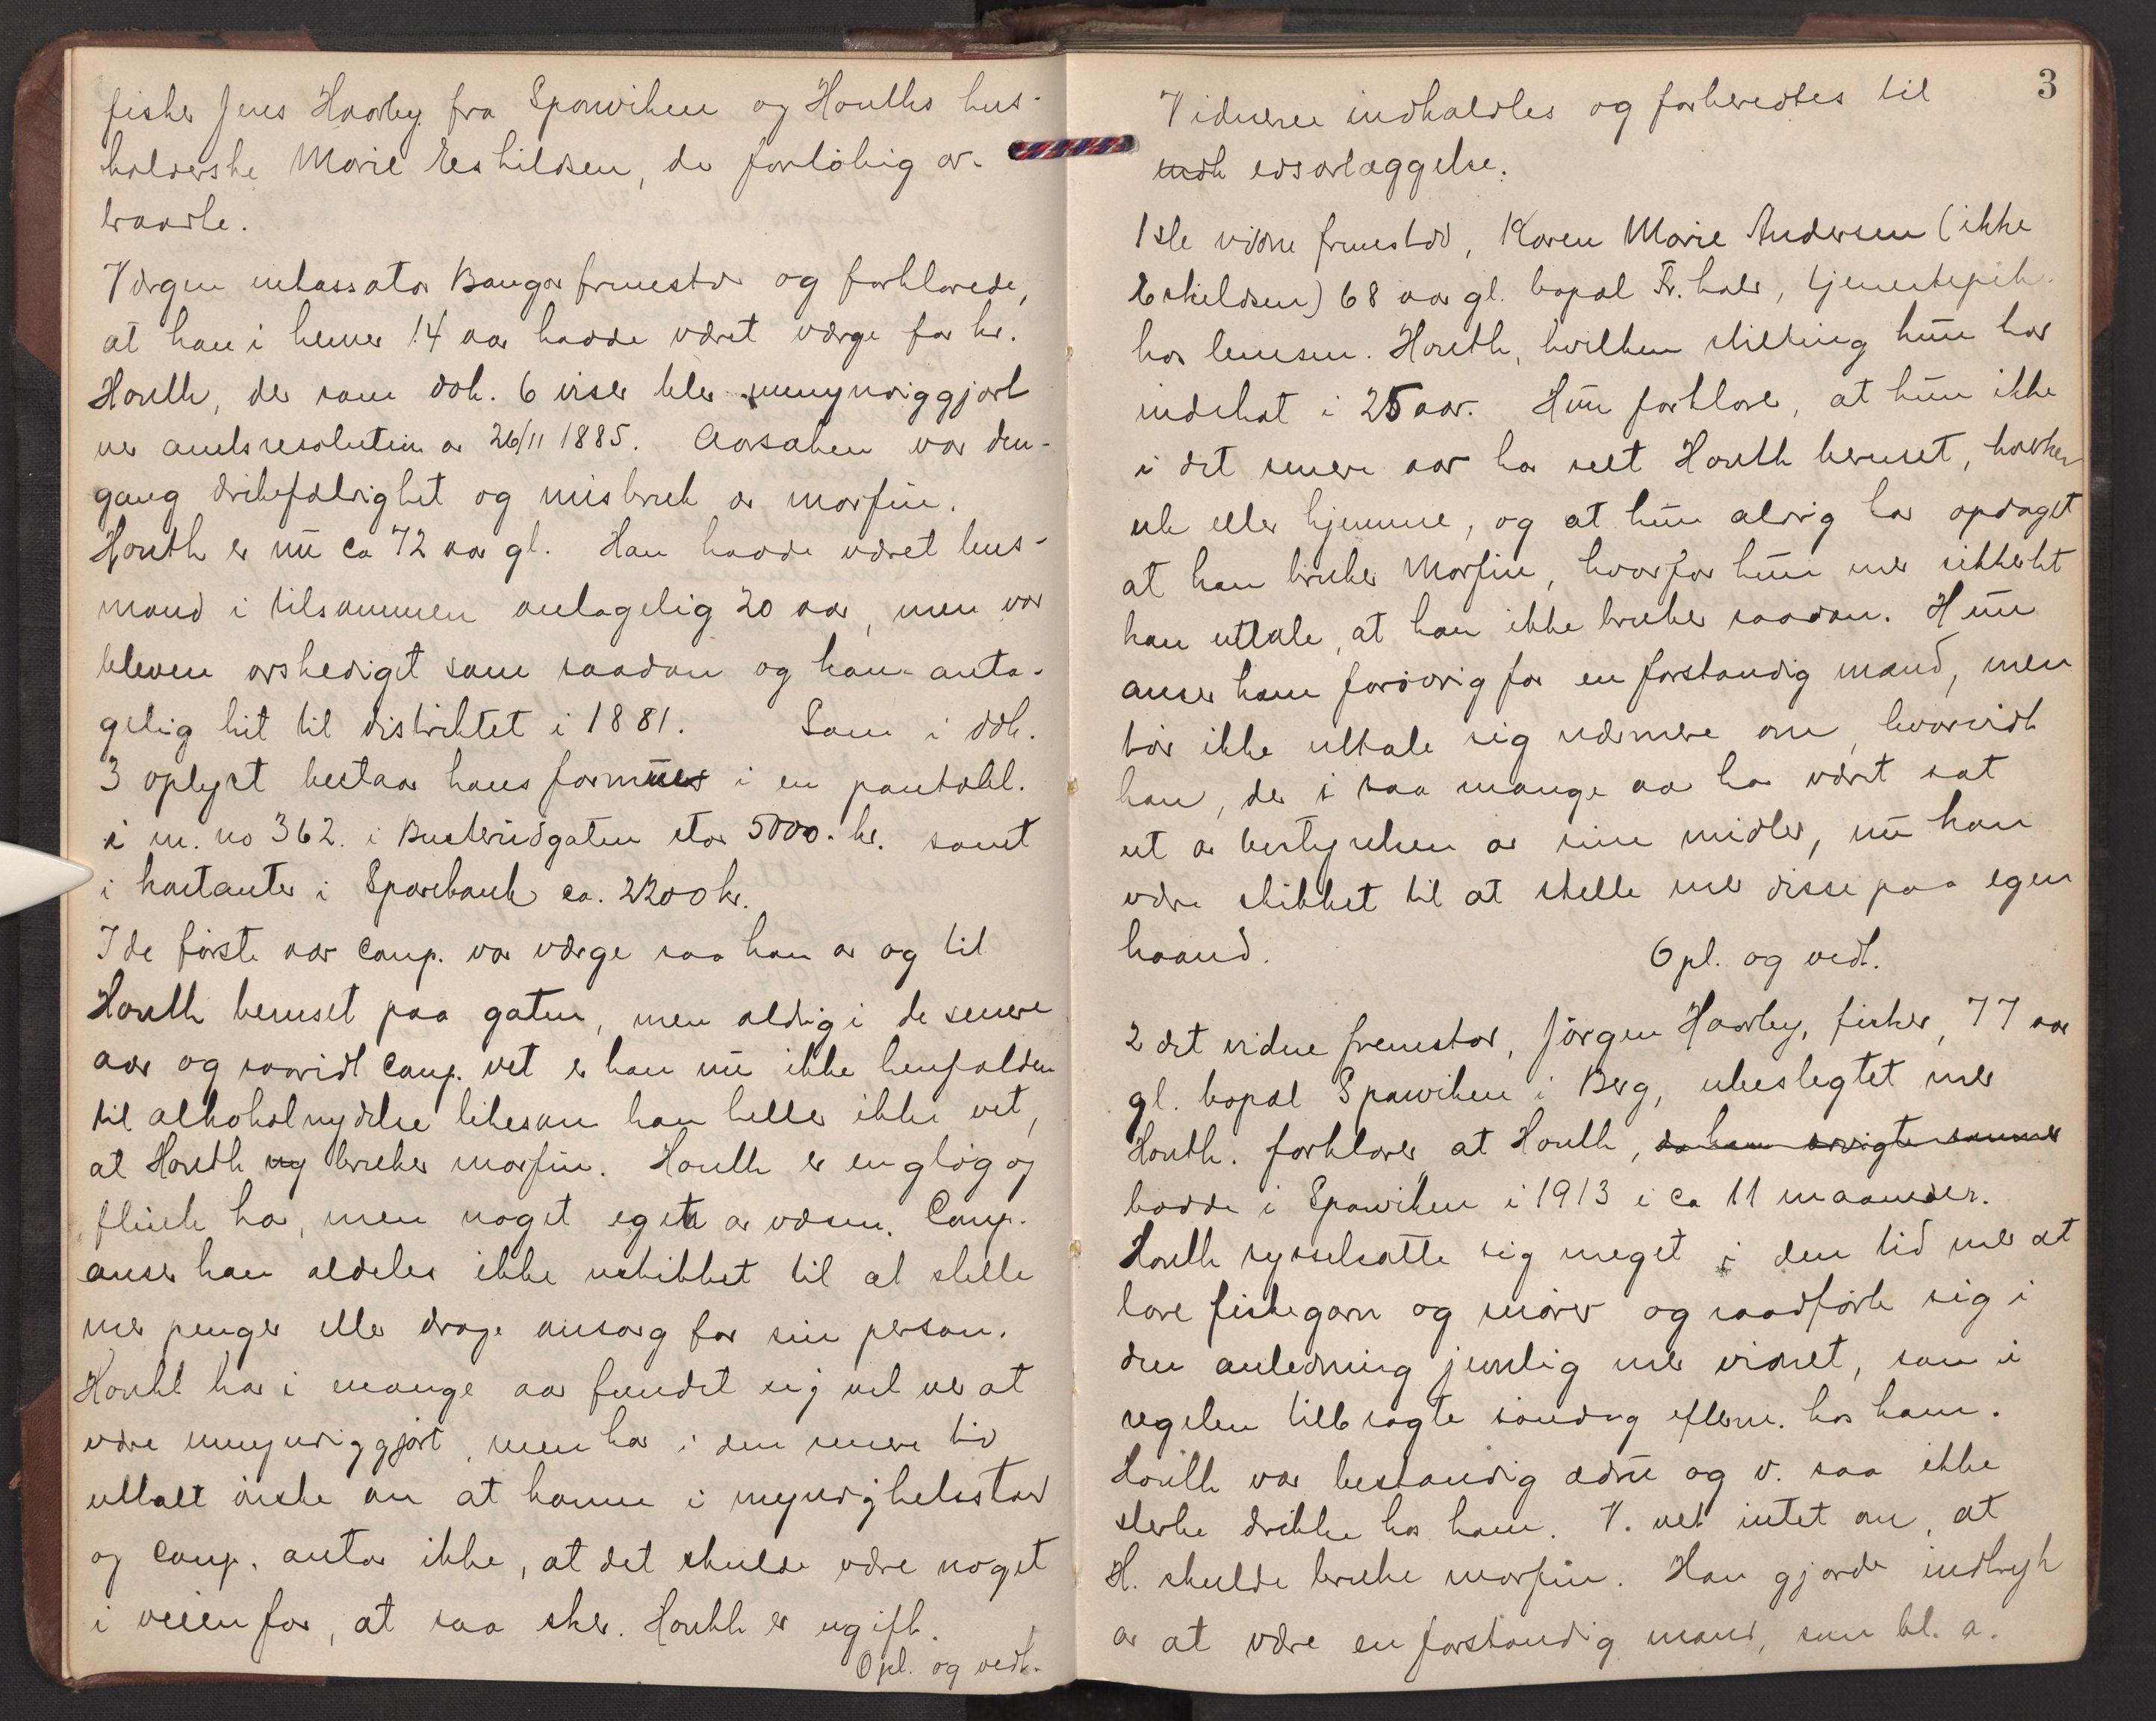 fisker Jens Haarby fra Sponviken og Houths hus-
holderske Marie Eskildsen, de foreløbig av-
traadte.
Værgen inkassator Bangor fremstod og forklarede,
at han i henved 14 aar hadde været værge for hr.
Houth, der som dok. 6 viser blev umyndiggjort
ved amtsresolution av 26/11 1885. Aarsaken var den-
gang drikfældighet og misbruk av morfin.
Houth er nu ca 72 aar gl. Han hadde været hus-
mand i tilsammen antagelig 20 aar, men var
bleven avskediget som saadan og kom anta-
gelig hit til distriktet i 1881. Som i dok.
3 oplyst bestaar hans formue i en pantobl.
i m. no 362. i Busterudgaten stor 5000.- kr. samt
i kontanter i Sparebank ca. 2200 kr.
I de første aar comp. var værge saa han av og til
Houth beruset paa gaten, men aldrig i de senere
aar og saavidt comp. vet er han nu ikke henfalden
til alkoholnydelse likesom han heller ikke vet,
at Houth ny bruker morfin. Houth er en gløg og
flink kar, men noget egen av væsen. Comp.
anser ham aldeles ikke uskikket til at stelle
med penger eller drage omsorg for sin person.
Houth har i mange aar fundet sig vel ved at
være umyndiggjort, men har i den senere tid
uttalt ønske om at komme i myndighetsstand
og comp. antar ikke, at det skulde være noget
i veien for, at saa sker. Houth er ugift.
Opl. og vedt.
3
Vidnerne indkaldtes og forberedtes til
indk edsavlæggelse.
1ste vidne fremstod, Karen Marie Andersen (ikke
Eskildsen) 68 aar gl. bopæl Fr.hald, tjenestepike
hos lensm. Houth, hvilken stilling hun har
indehat i 25 aar. Hun forklarer, at hun ikke
i det senere aar har seet Houth beruset, hverken
ute eller hjemme, og at hun aldrig har opdaget
at han bruker Morfin, hvorfor hun med sikkerhet
kan uttale, at han ikke bruker saadan. Hun
anser ham forøvrig for en forstandig mand, men
tør ikke uttale sig nærmere om, hvorvidt
han, der i saa mange aar har været sat
ut av bestyrelsen av sine midler, nu kan
være skikket til at stelle med disse paa egen
haand. Opl. og vedt.
2det vidne fremstod, Jørgen Haarby, fisker, 77 aar
gl. bopæl Sponviken i Berg, ubeslegtet med
Houth. forklarer at Houth,
bodde i Sponviken i 1913 i ca 11 maaneder.
Houth sysselsatte sig meget i den tid med at
lave fiskegarn og snører og raadførte sig i
den anledning jevnlig med vidnet, som i
regelen tilbragte søndag efterm. hos ham.
Houth var bestandig ædru og v. saa ikke
sterke drikke hos ham. V. vet intet om, at
H. skulde bruke morfin. Han gjorde indtryk
av at være en forstandig mand, som bl. a.